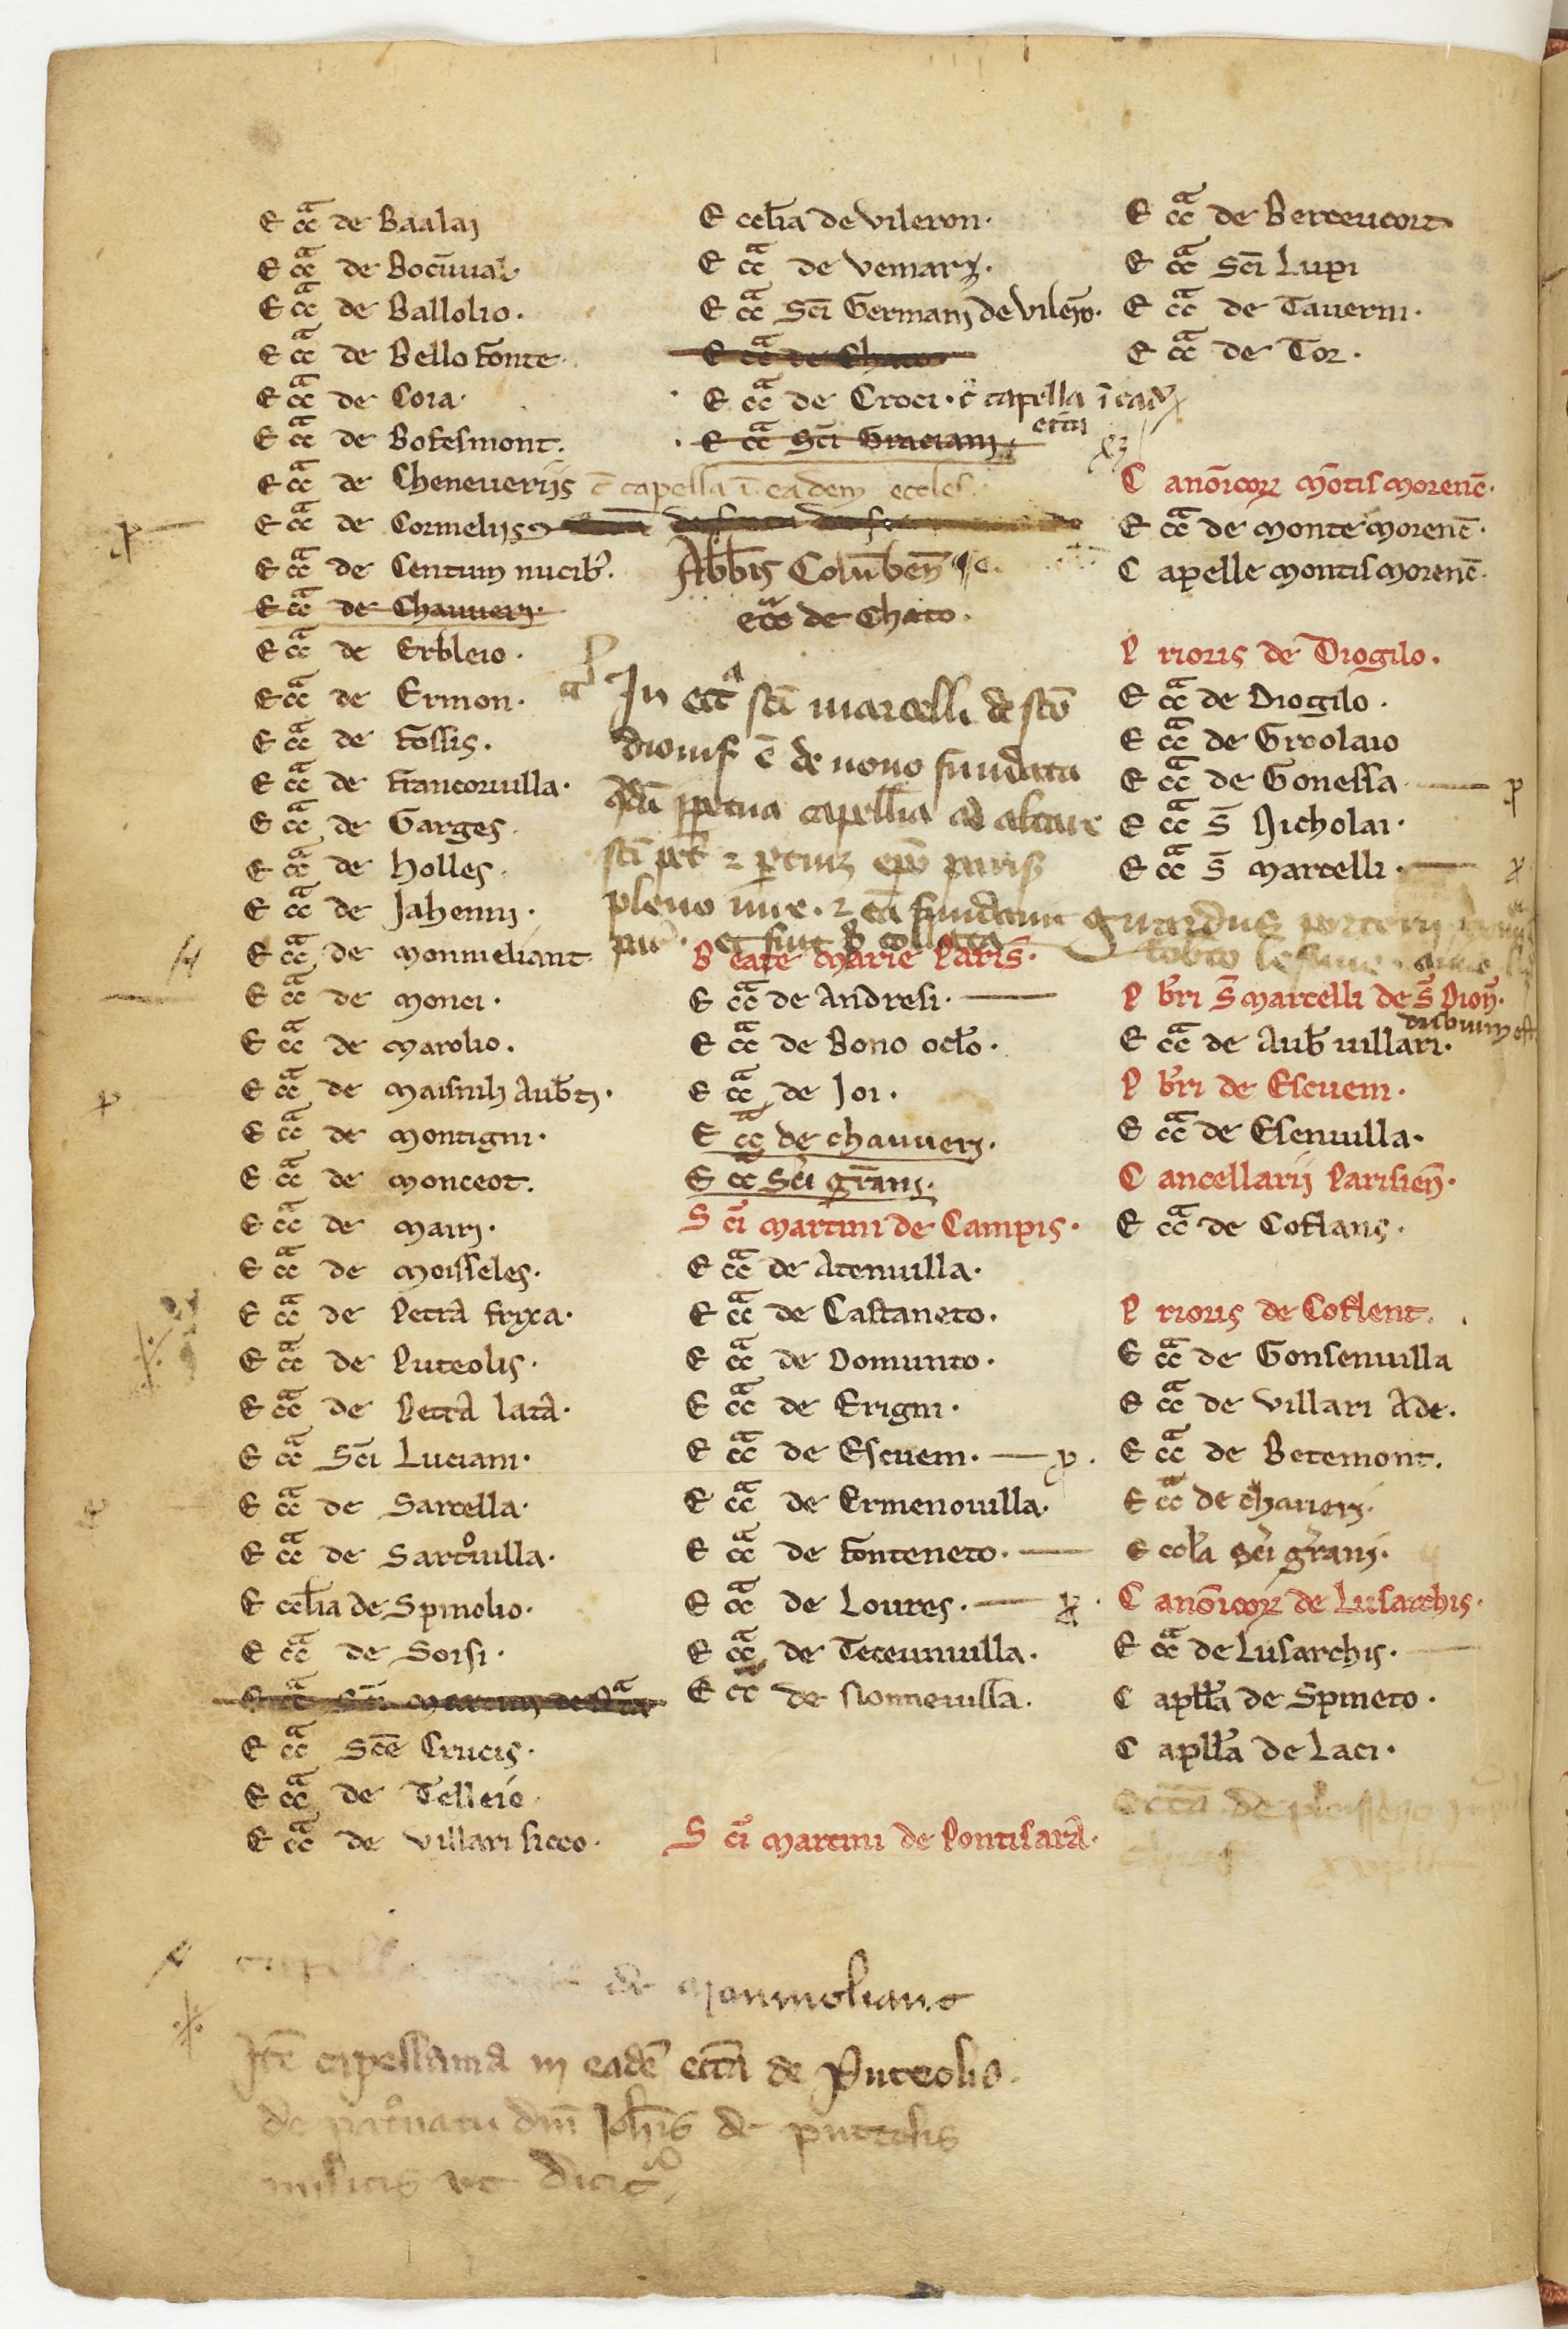 E ccᵃ de Baalaj
E ccᵃ de Bocūual
E ccᵃ de Ballolio.
E ccᵃ de Bello fonte.
E ccᵃ de Cora.
E ccᵃ de Bofesmont.
E ccᵃ de Cheneuerijs c̄ capella ī eadem eccles.
E ccᵃ de Cormelijs
E ccᵃ de Centum nucib᾽.
E ccᵃ de Chauuerj.
E ccᵃ de Erbleio.
E ccᵃ de Ermon.
E ccᵃ de fossis.
E ccᵃ de francoruilla.
E ccᵃ de Garges.
E ccᵃ de Holles.
E ccᵃ de Jahennj.
E ccᵃ de Monmeliant
E ccᵃ de Monci.
E ccᵃ de Marolio.
E ccᵃ de Maisnilj Aub̄tj.
E ccᵃ de Montigni.
E ccᵃ de Monceot.
E ccᵃ de Mairj.
E ccᵃ de Moisseles.
E ccᵃ de Petrā frixa.
E ccᵃ de Puteolis.
E ccᵃ de Petrā latā.
E ccᵃ Sc̄i Luciani.
E ccᵃ de Sarcella.
E ccᵃ de Sartͦuilla.
E ccl̄ia de Spinolio.
E ccᵃ de Soisi.
E ccᵃ Sc̄i
E ccᵃ Sc̄e Crucis.
E ccᵃ de Telleio
E ccᵃ de Villari sicco.
E ccl̄ia de Vileron.
E ccᵃ de Vemarz.
E ccᵃ Sc̄i Germanj de Vilerō.
E ccᵃ de Chato
E ccᵃ de Croci. c̄ capella ī ead᾽
E ccᵃ Sc̄i Gracianj.
Abb̄is Colūben̄
eccᵃ de Chato.
In eccᵃ sc̄i marcelli de sc̄o
dionis̄ ē de nouo fundata
q̄dā ꝑpetua capell̄ia ad altare
sc̄i pet᾽ ⁊ ꝑtin᾽ ep̄o paris᾽
pleno iure. ⁊ eā fundauit
B eate Marie Paris̄.
E ccᵃ de Andresi.
E ccᵃ de Bono ocl̄o.
E ccᵃ de Joi.
E ccᵃ de chauuerj.
E ccᵃ Sc̄i gr̄anj.
S c̄i Martini de Campis.
E ccᵃ de Atenuilla.
E ccᵃ de Castaneto.
E ccᵃ de Domunto.
E ccᵃ de Erigni.
E ccᵃ de Escuem. p.
E ccᵃ de Ermenouilla.
E ccᵃ de fonteneto.
E ccᵃ de Loures. p.
E ccᵃ de Teceunuilla.
E ccᵃ de Sionneuilla.
S c̄i Martini de Pontisarā.
E ccᵃ de Berteucort
E ccᵃ Sc̄i Lupi
E ccᵃ de Tauerni.
E ccᵃ de Tor.
C anōicoꝝ mōtis morenc̄.
E ccᵃ de Monte morenc̄.
C apelle Montis morenc̄.
P rioris de Diogilo.
E ccᵃ de Diogilo.
E ccᵃ de Groolaio
E ccᵃ de Gonessa p
E ccᵃ S̄ Nicholai.
E ccᵃ S̄ Marcelli.
P b̄ri S̄ Marcelli de S̄ Dion̄.
dubium est
E ccᵃ de Aub̄ uillari.
P b̄ri de Escuem.
E ccᵃ de Esenuilla.
C ancellarij Parisien̄.
E ccᵃ de Coflans.
P rioris de Coflent.
E ccᵃ de Gonsenuilla
E ccᵃ de Villari Ade.
E ccᵃ de Betemont.
E ccᵃ de chauerj.
E ccl̄a Sc̄i gr̄anj.
C anōicoꝝ de Lusarchis.
E ccᵃ de Lusarchis.
C apll̄a de Spineto.
C apll̄a de Laci.
de Monmeliant
Itē capellania in eadē eccl̄ia de Puteolis.
de pat᾽natu dn̄i Joh̄is de puteolis
militis ut dicit᾽